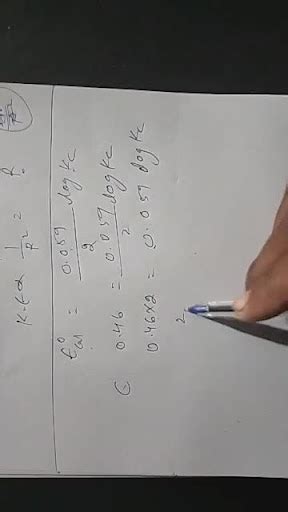 K.E α 1/R² =
E°cell = 0.059/2 log Kc
0.46 = 0.059/2 log Kc
0.46×2 = 0.059 log Kc
2